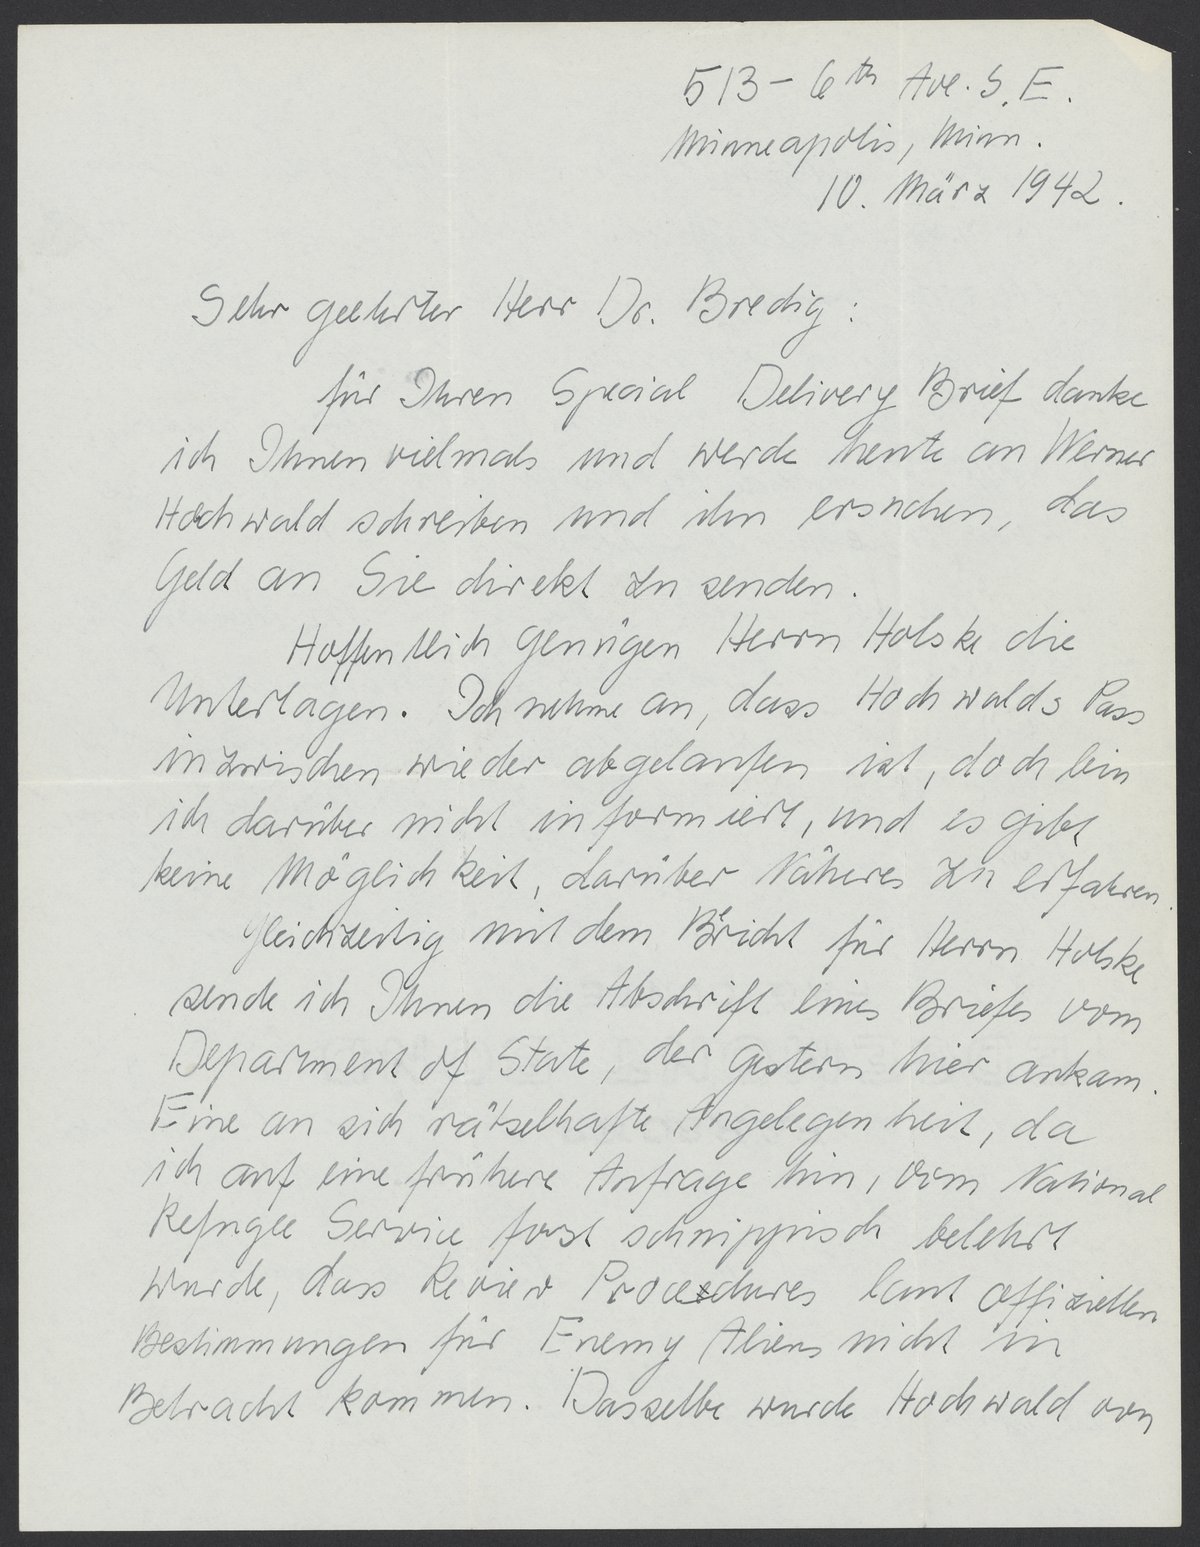 513 - 6th Ave. S.E.
Minneapolis, Minn.
10. März 1942.
Sehr geehrter Herr Dr. Bredig:
für Ihren Special Delivery Brief danke
ich Ihnen vielmals und werde heute an Werner
Hochwald schreiben und ihn ersuchen, das
Geld an Sie direkt zu senden.
Hoffentlich genügen Herrn Holske die
Unterlagen. Ich nehme an, dass Hochwalds Pass
inzwischen wieder abgelaufen ist, doch bin
ich darüber nicht informiert, und es gibt
keine Möglichkeit, darüber Näheres zu erfahren.
Gleichzeitig mit dem Bericht für Herrn Holske
sende ich Ihnen die Abschrift eines Briefes vom
Department of State, der gestern hier ankam.
Eine an sich rätselhafte Angelegenheit, da
ich auf eine frühere Anfrage hin, vom National
Refugee Service fast schnippisch belehrt
wurde, dass Review Procedures laut offiziellen
Bestimmungen für Enemy Aliens nicht in
Betracht kommen. Dasselbe wurde Hochwald von